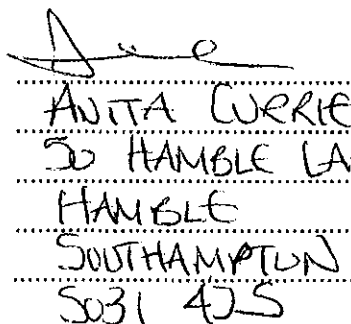 ANITA CURRIE
50 HAMBLE LA
HAMBLE
SOUTHAMPTON
SO31 4JS